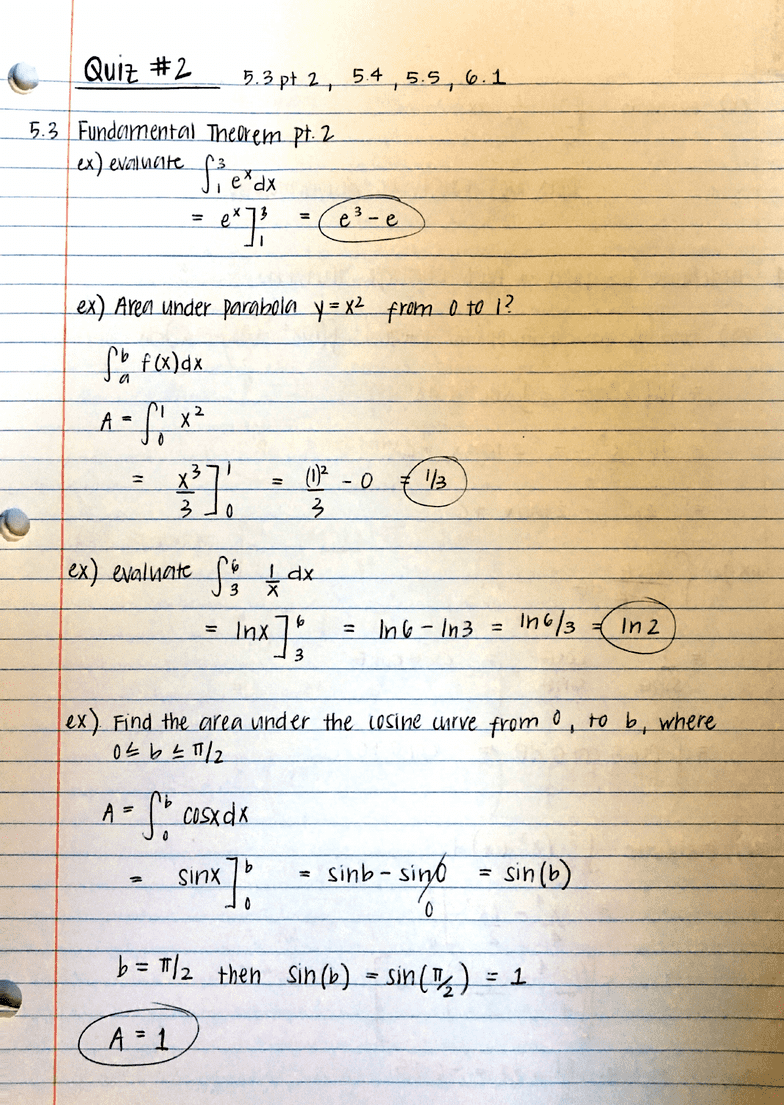 Quiz #2 5.3 pt 2, 5.4, 5.5, 6.1
5.3 Fundamental Theorem pt. 2
ex) evaluate ∫₁³ eˣdx
= eˣ]₁³ = e³ - e
ex) Area under parabola y = x² from 0 to 1?
∫ₐᵇ f(x)dx
A = ∫₀¹ x²
= x³/3]₀¹ = (1)²/3 - 0 = 1/3
ex) evaluate ∫₃⁶ 1/x dx
= lnx]₃⁶ = ln6 - ln3 = ln6/3 = ln2
ex) Find the area under the cosine curve from 0, to b, where
0 ≤ b ≤ π/2
A = ∫₀ᵇ cosxdx
= sinx]₀ᵇ = sinb - sin0 = sin(b)
0
b = π/2 then sin(b) = sin(π/2) = 1
A = 1